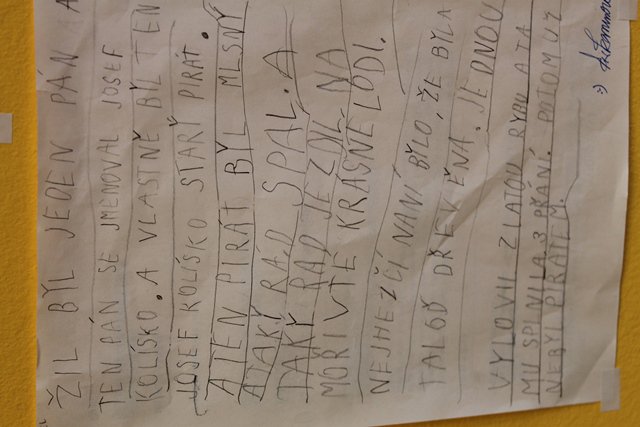 ŽIL BYL JEDEN PÁN A
TEN PÁN SE JMENOVAL JOSEF
KOLÍSKO. A VLASTNĚ BYL TEN
JOSEF KOLÍSKO STARÝ PIRÁT.
A TEN PIRÁT BYL MLSNÝ
ATAKÝ RÁD SPAL. A
TAKÝ RÁD JEZDIL NA
MOŘI VTÉ KRÁSNÉ LODI.
NEJHEZČÍ NANÍ BYLO, ŽE BYLA
TALOĎ DŘEVĚNÁ. JEDNOU
VYLOVIL ZLATOU RYBU ATA
MU SPLNILA 3 PŘÁNÍ. POTOM UŽ
NEBYL PIRÁTEM.
:)